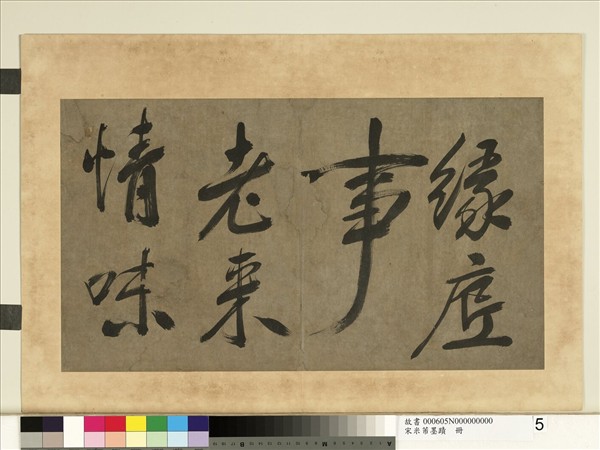 緣
事
老來
情味
故書 000605N000000000
宋米芾墨蹟 冊
5